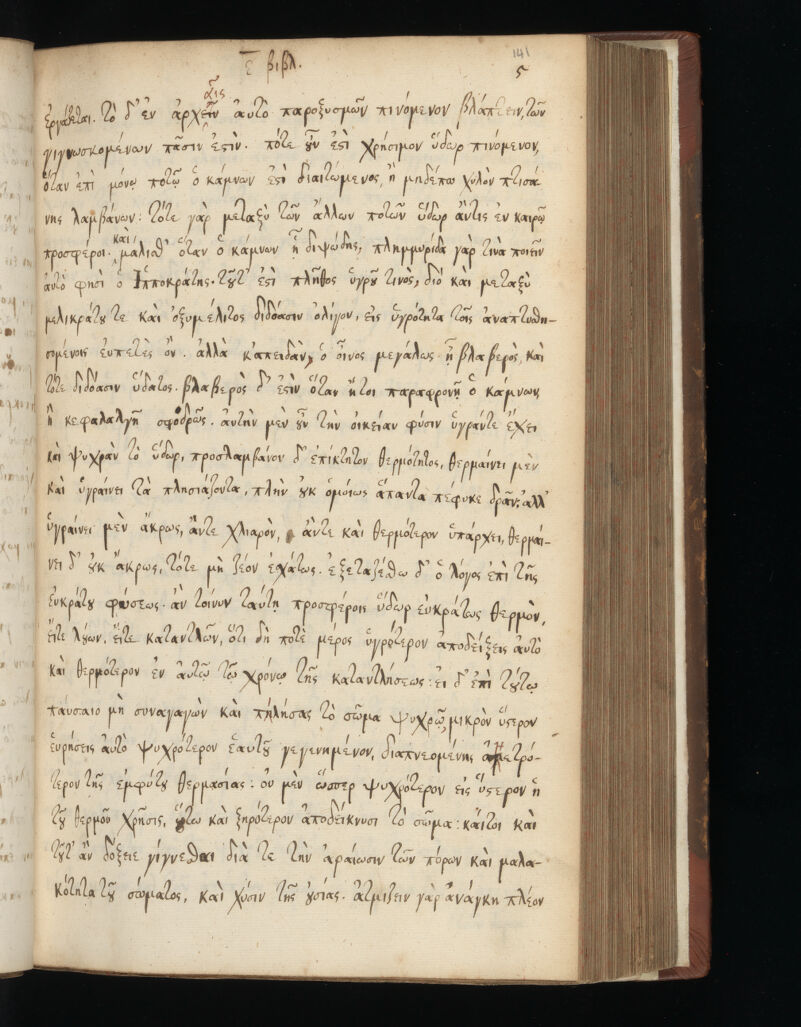 ε̄ βιβλ.
141
5
ἐργάζεται. τὸ δ' ἐν ἀρχαῖς αὐτὸ παροξυσμῶν πινόμενον βλάπτειν, τῶν
γιγνωσκομένων πᾶσιν ἐστὶν. πότε οὖν ἐστὶ χρήσιμον ὕδωρ πινόμενον,
ὅταν ἐπὶ μόνῳ ποτῷ ὁ κάμνων ἐστὶ διαιτώμενος, ἢ μηδέπω χυλὸν πτισά
νης λαμβάνων: τότε γὰρ μεταξὺ τῶν ἄλλων ποτῶν ὕδωρ ἄντις ἐν καιρῷ
προσφέροι. καὶ μάλισθ' ὅταν ὁ κάμνων ᾖ διψώδης, πλημμυρίδα γὰρ τινὰ ποιεῖν
αὐτό φησὶ ὁ Ἱπποκράτης. τοῦτ' ἐστὶ πλῆθος ὑγροῦ τινὸς, διὸ καὶ μεταξὺ
μελικράτου τε καὶ ὀξυμέλιτος διδόασιν ὀλίγον, εἰς ὑγρότητα τοῖς ἀναπτυσθη-
σομένοις εὐπετὲς ὂν. ἀλλὰ κἀπειδὰν ὁ οἶνος μεγάλως ᾖ βλαβερὸς, καὶ
τότε διδόασιν ὕδατος. βλαβερὸς δ' ἐστὶν ὅταν ἤτοι παραφρονῇ ὁ κάμνων,
ἢ κεφαλαλγῇ σφοδρῶς. αὐτὴν μὲν οὖν τὴν οἰκείαν φύσιν ὑγράντε ἔχει
καὶ ψυχρὰν τὸ ὕδωρ, προσλαμβάνον δ' ἐπίκτητον θερμότητος, θερμαίνει μὲν
καὶ ὑγραίνει τὰ πλησιάζοντα, πλὴν οὐκ ὁμοίως ἅπαντα πέφυκε δρᾶν, ἀλλ'
ὑγραίνει μὲν ἄκρως, ἄντε χλιαρὸν, ἄντε καὶ θερμότερον ὑπάρχει, θερμαί-
νει δ' οὐκ ἄκρως, τότε μὴ ζέον ἐσχάτως. ἐξεταζέσθω δ' ὁ λόγος ἐπὶ τῆς
εὐκράτου φύσεως. ἂν τοίνυν ταύτῃ προσφέροις ὕδωρ εὐκράτως θερμὸν,
εἴτε λούων, εἴτε καταντλῶν, ὅτι δὴ ποτὲ μέρος ὑγρότερον ἀποδείξεις αὐτὸ
καὶ θερμότερον ἐν αὐτῷ τῷ χρόνῳ τῆς καταντλήσεως: εἰ δ' ἐπὶ τούτῳ
παύσαιο μὴ συναγαγὼν καὶ πιλήσας τὸ σῶμα ψυχρῷ, μικρὸν ὕστερον
εὑρήσεις αὐτὸ ψυχρότερον ἑαυτοῦ γεγενημένον, διαπνεομένης ἀμετρό-
τερον τῆς ἐμφύτου θερμασίας: οὐ μὲν ὥσπερ ψυχρότερον εἰς ὕστερον ἡ
τοῦ θερμοῦ χρῆσις, οὕτω καὶ ξηρότερον ἀποδείκνυσι τὸ σῶμα: καίτοι καὶ
τοῦτ' ἂν δόξειε γίγνεσθαι διὰ τε τὴν ἀραίωσιν τῶν πόρων καὶ μαλα-
κότητα τοῦ σώματος, καὶ χύσιν τῆς οὐσίας. ἀτμίζειν γὰρ ἀνάγκη πλέον